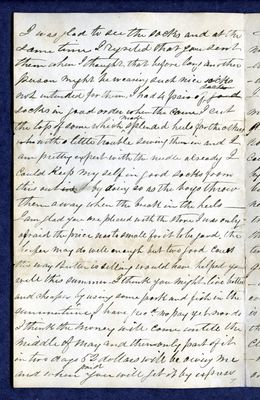 I was glad to see the socks and at the
same time I regreted that you sent
them when I thought that before long another
person might be wearing such nice socks
not intended for them, I had 4 pair of good
socks in good order when the came I cut
the top of some which made splended heels for the others
who with a little trouble sewing them on and I
am pretty expert with the needle already I
could keep my self in good socks from
this out by doing so as the boys throw
them away when the break in the heels
I am glad you are pleased with the stove I was only
afraid the price was to small for it to be good, the
keeper may do well enough but two good cows
this way Butter is selling would have helped you
well this summer. I think you might live better
and cheaper by using some pork and fish in the
summertime, I have rec'd no pay yet nor do
I think the money will come untill the
middle of May and then only part of it
in two days 52 dollars will be owing me
and when paid you will get it by express